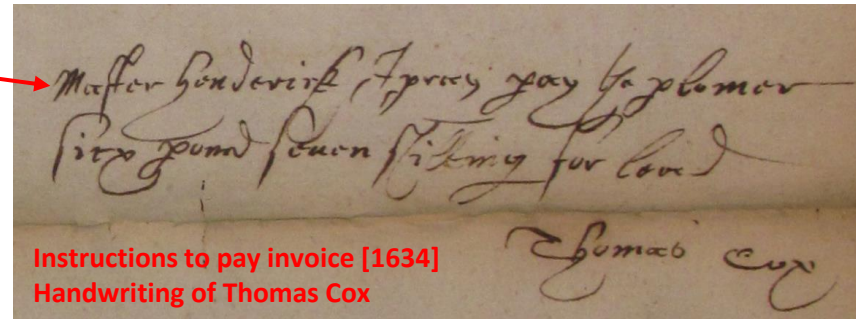 Master Henderick, I pray pay the plomer
sixx pound seven shilling for lead
Thomas Cox
Instructions to pay invoice [1634]
Handwriting of Thomas Cox